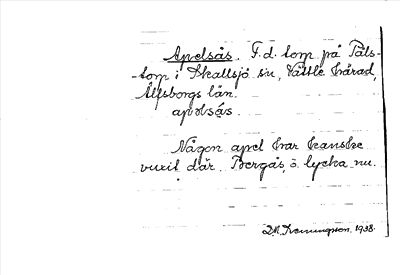 Apelsås. F.d. torp på Påls-
-torp i Skallsjö sn, Vättle härad,
Älfsborgs län.
apəlsås.
Någon apel har kanske
vuxit där. Bergås, ö. lycka nu.
1938.